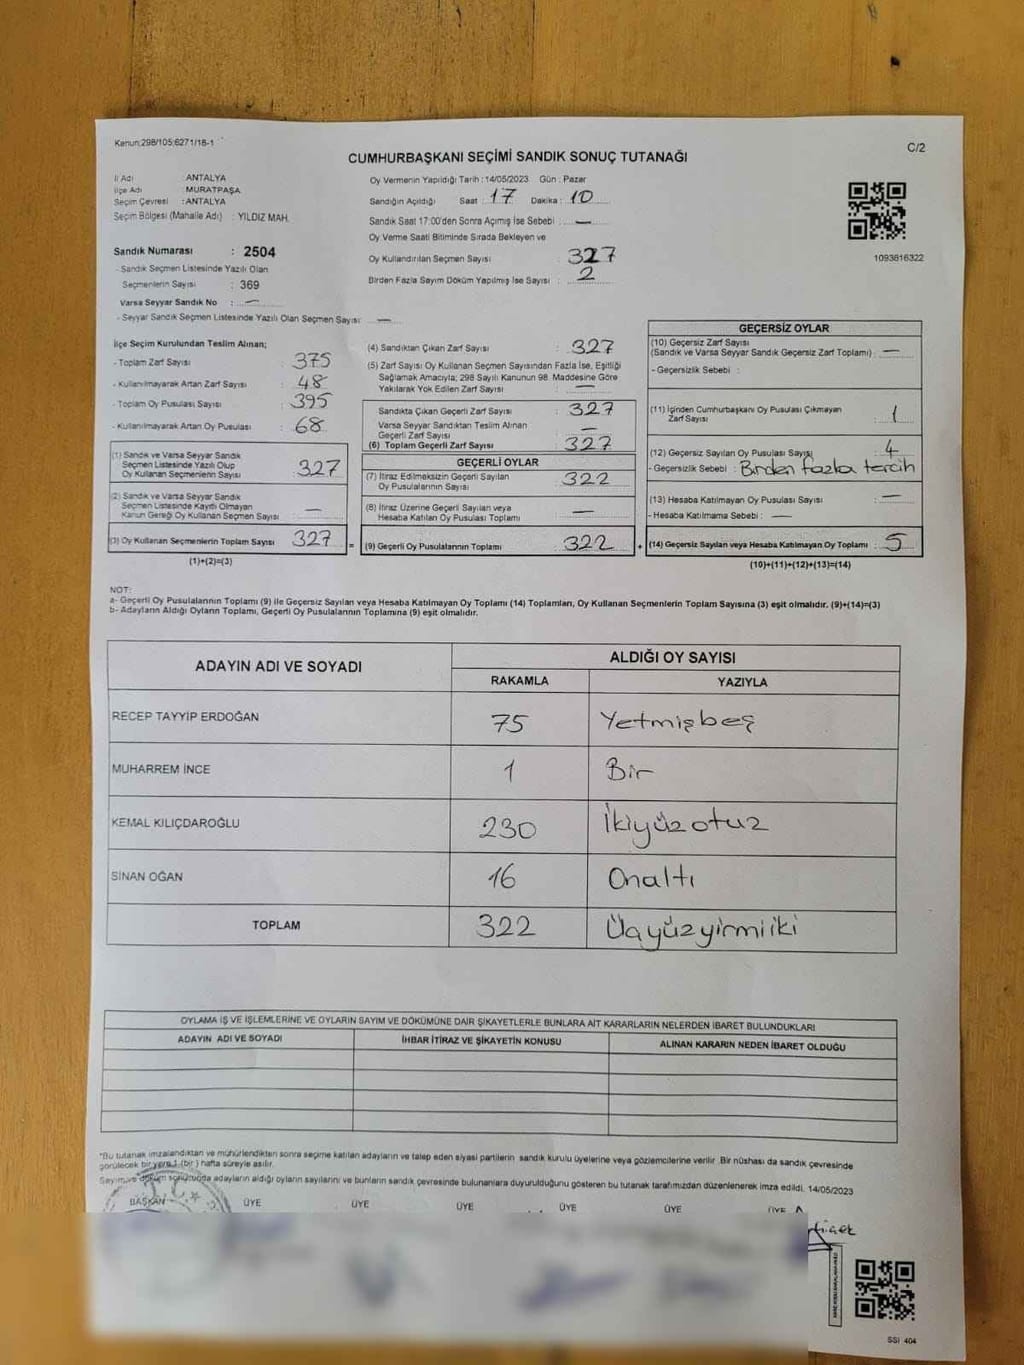 Kanun:298/105;6271/18-1
C/2
CUMHURBAŞKANI SEÇİMİ SANDIK SONUÇ TUTANAĞI
İl Adı ANTALYA
İlçe Adı : MURATPAŞA
Seçim Çevresi : ANTALYA
Seçim Bölgesi (Mahalle Adı) : YILDIZ MAH.
Sandık Numarası : 2504
- Sandık Seçmen Listesinde Yazılı Olan
Seçmenlerin Sayısı : 369
Varsa Seyyar Sandık No : —
- Seyyar Sandık Seçmen Listesinde Yazılı Olan Seçmen Sayısı: —
Oy Vermenin Yapıldığı Tarih : 14/05/2023 Gün : Pazar
Sandığın Açıldığı Saat : 17 Dakika : 10
Sandık Saat 17:00'den Sonra Açımış İse Sebebi : —
Oy Verme Saati Bitiminde Sırada Bekleyen ve
Oy Kullandırılan Seçmen Sayısı : 327
Birden Fazla Sayım Döküm Yapılmış İse Sayısı : 2
1093816322
İlçe Seçim Kurulundan Teslim Alınan;
- Toplam Zarf Sayısı : 375
- Kullanılmayarak Artan Zarf Sayısı : 48
- Toplam Oy Pusulası Sayısı : 395
- Kullanılmayarak Artan Oy Pusulası : 68
(1) Sandık ve Varsa Seyyar Sandık
Seçmen Listesinde Yazılı Olup
Oy Kullanan Seçmenlerin Sayısı : 327
(2) Sandık ve Varsa Seyyar Sandık
Seçmen Listesinde Kayıtlı Olmayan
Kanun Gereği Oy Kullanan Seçmen Sayısı : —
(3) Oy Kullanan Seçmenlerin Toplam Sayısı : 327 =
(1)+(2)=(3)
(4) Sandıktan Çıkan Zarf Sayısı : 327
(5) Zarf Sayısı Oy Kullanan Seçmen Sayısından Fazla İse, Eşitliği
Sağlamak Amacıyla; 298 Sayılı Kanunun 98. Maddesine Göre
Yakılarak Yok Edilen Zarf Sayısı : —
Sandıkta Çıkan Geçerli Zarf Sayısı : 327
Varsa Seyyar Sandıktan Teslim Alınan
Geçerli Zarf Sayısı : —
(6) Toplam Geçerli Zarf Sayısı : 327
GEÇERLİ OYLAR
(7) İtiraz Edilmeksizin Geçerli Sayılan
Oy Pusulalarının Sayısı : 322
(8) İtiraz Üzerine Geçerli Sayılan veya
Hesaba Katılan Oy Pusulası Toplamı : —
(9) Geçerli Oy Pusulalarının Toplamı : 322 +
GEÇERSİZ OYLAR
(10) Geçersiz Zarf Sayısı
(Sandık ve Varsa Seyyar Sandık Geçersiz Zarf Toplamı) : —
- Geçersizlik Sebebi :
(11) İçinden Cumhurbaşkanı Oy Pusulası Çıkmayan
Zarf Sayısı : 1
(12) Geçersiz Sayılan Oy Pusulası Sayısı : 4
- Geçersizlik Sebebi : Birden fazla tercih
(13) Hesaba Katılmayan Oy Pusulası Sayısı : —
- Hesaba Katılmama Sebebi : —
(14) Geçersiz Sayılan veya Hesaba Katılmayan Oy Toplamı : 5
(10)+(11)+(12)+(13)=(14)
NOT:
a- Geçerli Oy Pusulalarının Toplamı (9) ile Geçersiz Sayılan veya Hesaba Katılmayan Oy Toplamı (14) Toplamları, Oy Kullanan Seçmenlerin Toplam Sayısına (3) eşit olmalıdır. (9)+(14)=(3)
b- Adayların Aldığı Oyların Toplamı, Geçerli Oy Pusulalarının Toplamına (9) eşit olmalıdır.
ADAYIN ADI VE SOYADI
ALDIĞI OY SAYISI
RAKAMLA YAZIYLA
RECEP TAYYİP ERDOĞAN 75 Yetmişbeş
MUHARREM İNCE 1 Bir
KEMAL KILIÇDAROĞLU 230 İkiyüzotuz
SİNAN OĞAN 16 Onaltı
TOPLAM 322 Üçyüzyirmiiki
OYLAMA İŞ VE İŞLEMLERİNE VE OYLARIN SAYIM VE DÖKÜMÜNE DAİR ŞİKAYETLERLE BUNLARA AİT KARARLARIN NELERDEN İBARET BULUNDUKLARI
ADAYIN ADI VE SOYADI İHBAR İTİRAZ VE ŞİKAYETİN KONUSU ALINAN KARARIN NEDEN İBARET OLDUĞU
*Bu tutanak imzalandıktan ve mühürlendikten sonra seçime katılan adayların ve talep eden siyasi partilerin sandık kurulu üyelerine veya gözlemcilerine verilir. Bir nüshası da sandık çevresinde
görülecek bir yere 1 (bir) hafta süreyle asılır.
Sayım ve döküm sonucunda adayların aldığı oyların sayılarını ve bunların sandık çevresinde bulunanlara duyurulduğunu gösteren bu tutanak tarafımızdan düzenlenerek imza edildi. 14/05/2023
BAŞKAN ÜYE ÜYE ÜYE ÜYE ÜYE ÜYE
T.C.
SSI 404